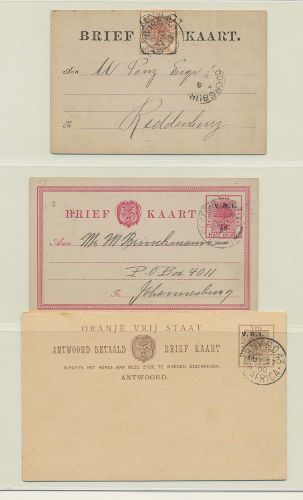 BRIEF KAART.
Aan W Penz Esqr
Te Reddersburg
BRIEF KAART
V.R.I.
Aan Mr M Brinchmann
P.O Box 4011
Te Johannesburg
ORANJE VRIJ STAAT
ANTWOORD BETAALD BRIEF KAART
SLECHTS HET ADRES AAN DEZE ZYDE TE WORDEN GESCHREVEN.
ANTWOORD.
V.R.I.
ARMY P.O.
S. AFRICA